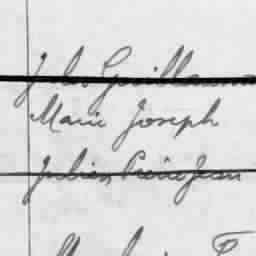 J. B. Guillaume
Marie Joseph
Julien Pierre Jean